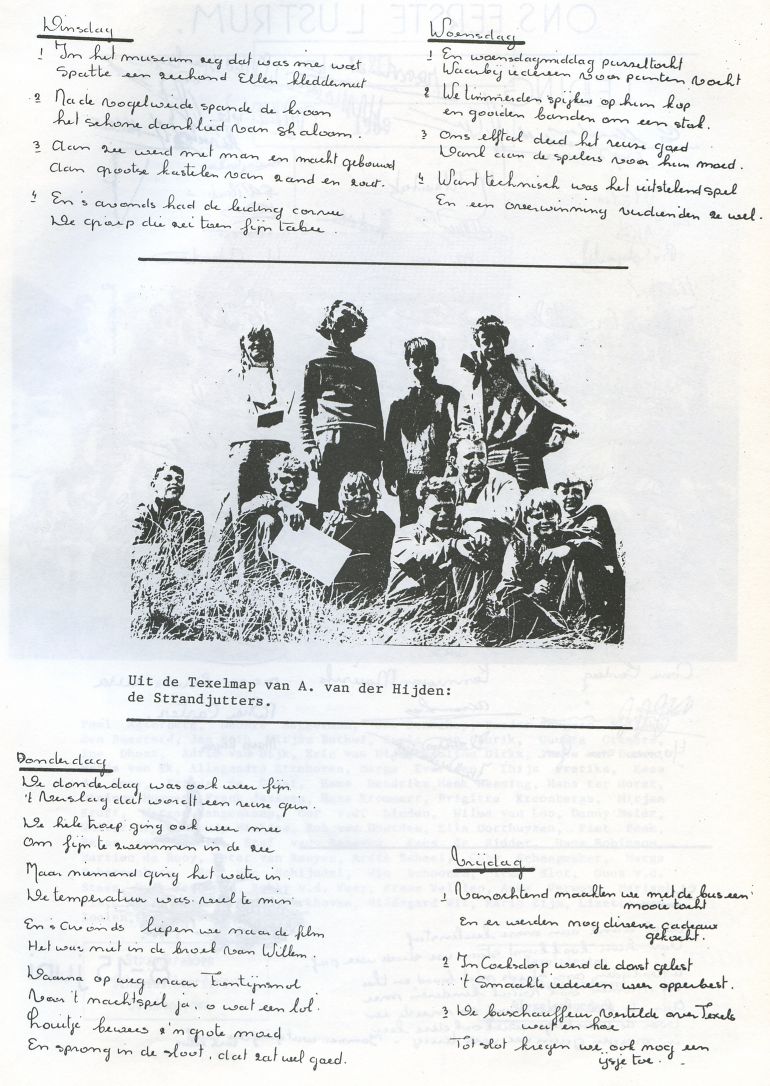 Dinsdag
1 In het museum zeg dat was me wat
Spatte een zeehond Ellen kleddernat
2 Na de vogelweide spande de kroon
het schone danklied van shaloom.
3 Aan zee werd met man en macht gebouwd
Aan grootse kastelen van zand en zout.
4 En 's avonds had de leiding corvee
De groep die zei toen fijn tabee.
Woensdag
1 En woensdagmiddag puzzeltocht
Waarbij iedereen voor punten vocht
2 We timmerden spijkers op hun kop
en gooiden banden om een stok.
3 Ons elftal deed het reuze goed
Dank aan de spelers voor hun moed.
4 Want technisch was het uitstekend spel
En een overwinning verdienden ze wel.
Uit de Texelmap van A. van der Hijden:
de Strandjutters.
Donderdag
De donderdag was ook weer fijn
't Verslag dat wordt een reuze gein.
De hele troep ging ook weer mee
Om fijn te zwemmen in de zee
Maar niemand ging het water in.
De temperatuur was veel te min
En 's avonds liepen we naar de film
Het was niet in de broek van Willem.
Daarna op weg naar
Voor 't nachtspel ja, o wat een lol.
Louitje bewees z'n grote moed
En sprong in de sloot, dat zat wel goed.
Vrijdag
1 Vanochtend maakten we met de bus een
mooie tocht
En er werden nog diverse cadeaus
gekocht.
2 In Cocksdorp werd de dorst gelest
't Smaakte iedereen weer opperbest.
3 De buschauffeur vertelde over Texels
wat en hoe
Tot slot kregen we ook nog een
ijsje toe.